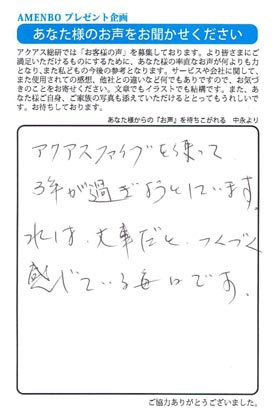 AMENBO プレゼント企画
あなた様のお声をお聞かせください
アクアス総研では「お客様の声」を募集しております。より皆さまにご
満足いただけるものにするために、あなた様の率直なお声が何よりも力
となり、また私どもの今後の参考となります。サービスや会社に関して、
また使用されての感想、他社との違いなど何でもありですので、お気づ
きのことをお寄せください。文章でもイラストでも結構です。また、あ
なた様ご自身、ご家族の写真も添えていただけるととってもうれしいで
す。お待ちしております。
あなた様からの『お声』を待ちこがれる 中永より
アクアスファイブを使って
3年が過ぎようとしています。
水は、大事だと、つくづく
感じている毎日です。
ご協力ありがとうございました。